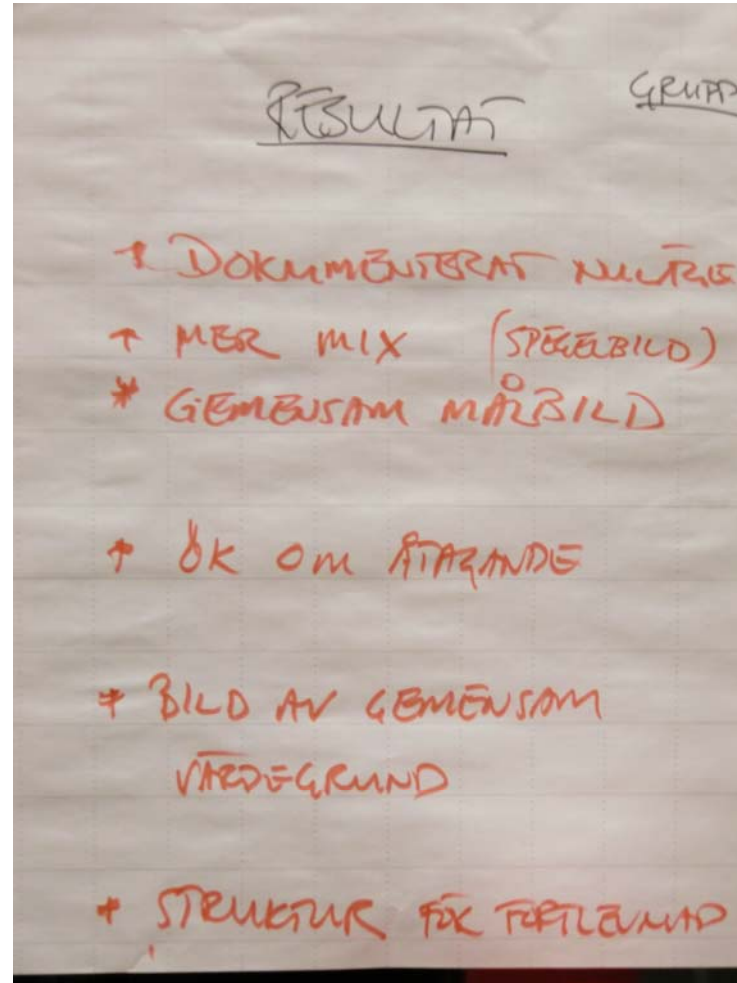 RESULTAT GRUPP
* DOKUMENTERAT NULÄGE
* MER MIX (SPEGELBILD)
* GEMENSAM MÅLBILD
* ÖK OM ÅTAGANDE
* BILD AV GEMENSAM
VÄRDEGRUND
* STRUKTUR FÖR FORTLEVNAD